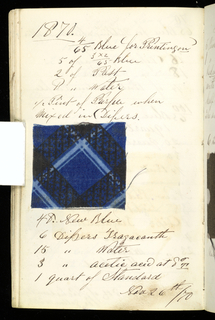 1870.
#
65 Blue for Printing on
5 of 5x2 65 Blue
2 of Past
2 " Water
1/2 Pint of Purple when
Mixed in Dippers.
4 New Blue
6 Dippers Tragacanth
15 " Water
3 " acetic acid at 8
1 quart of Standard
Nov 26th /70